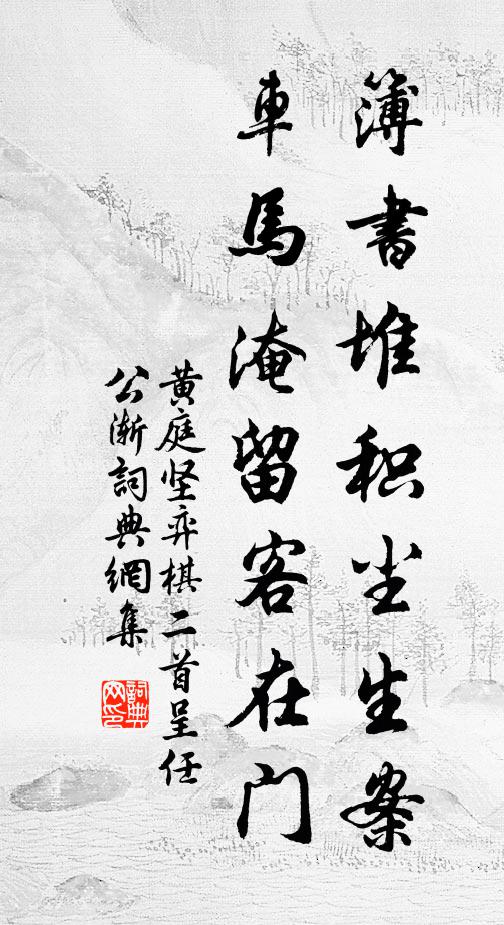 簿書堆积尘生案
車馬淹留客在门
黄庭坚弈棋二首呈任
公漸詞典網集
詞典
网印